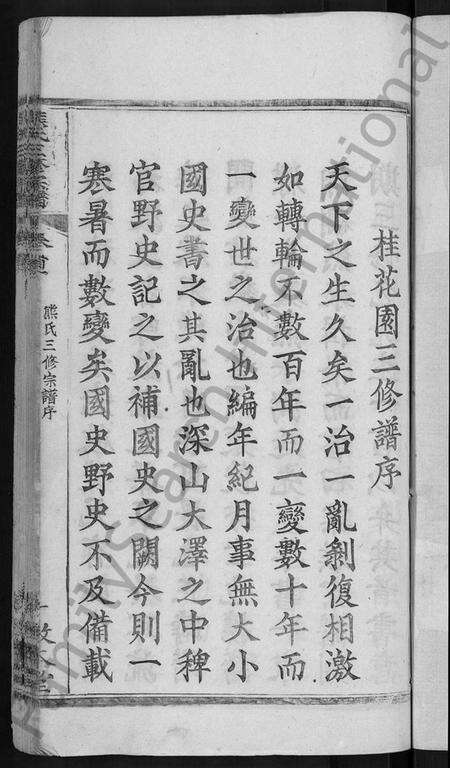 桂花園三修譜序
天下之生久矣一治一亂剝復相激
如轉輪不數百年而一變數十年而
一變世之治也編年紀月事無大小
國史書之其亂也深山大澤之中稗
官野史記之以補國史之闕今則一
寒暑而數變矣國史野史不及備載
熊氏三修宗譜
卷首
熊氏三修宗譜序
一
FamilySearch International